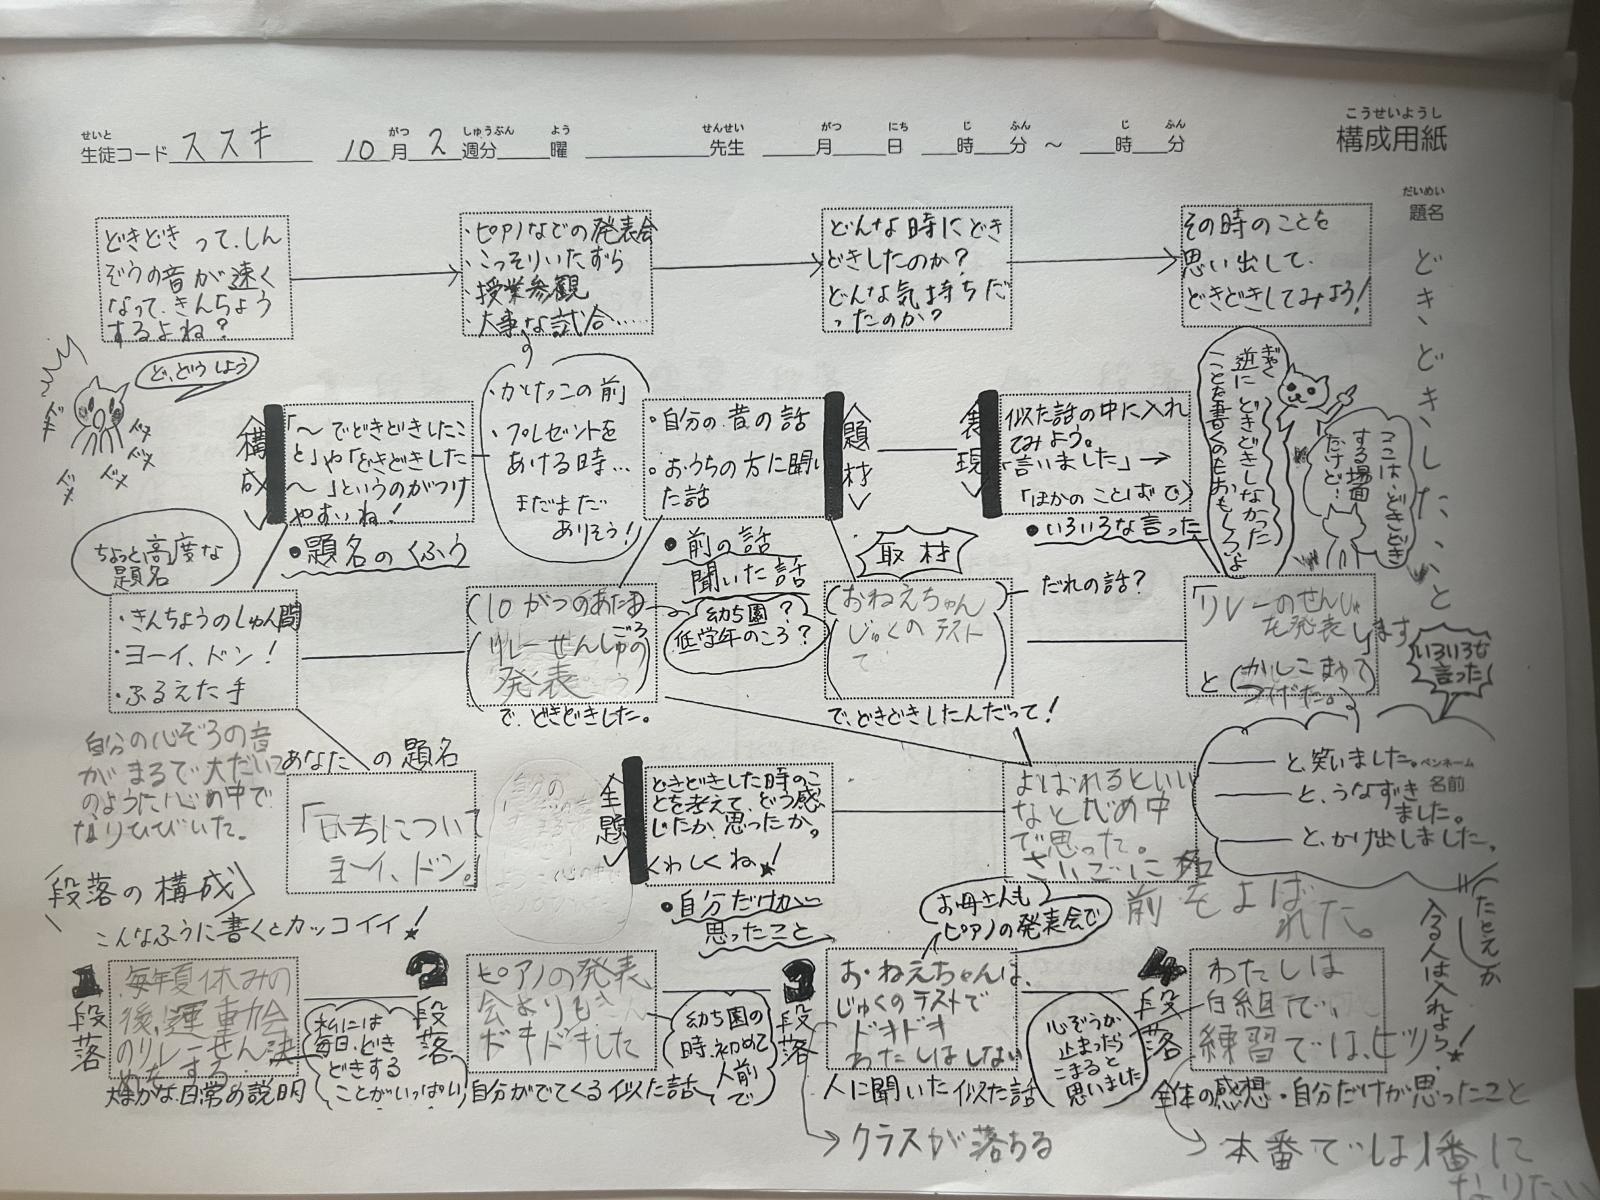 こうせいようし
構成用紙
せいと
生徒コード ススキ
がつ しゅうぶん よう
10月 2週分 曜
せんせい
先生
がつ にち じ ふん じ ふん
月 日 時 分 〜 時 分
だいめい
題名
どきどきしたこと
どきどきって、しん
ぞうの音が速く
なって、きんちょう
するよね?
・ピアノなどの発表会
・こっそりいたずら
・授業参観
・大事な試合……
どんな時にどき
どきしたのか?
どんな気持ちだ
ったのか?
その時のことを
思い出して、
どきどきしてみよう!
ど、どうしよう
構成
「〜でどきどきしたこ
と」や「どきどきした
〜」というのがつけ
やすいね!
・かけっこの前
・プレゼントを
あける時…
まだまだ
ありそう!
・自分の昔の話
・おうちの方に聞い
た話
題材
表現
似た話の中に入れ
てみよう。
「言いました」→
「ほかのことばで」
ぎゃく
逆にどきどきしなかった
ことを書くのもおもしろいよ
ここは、どきどき
する場面
だけど…
ちょっと高度な
題名
●題名のくふう
●前の話
聞いた話
取材
●いろいろな言った
・きんちょうのしゅん間
・ヨーイ、ドン!
・ふるえた手
リレーせんしゅの
発表
で、どきどきした。
幼ち園?
低学年のころ?
おねえちゃん
じゅくのテスト
で
で、どきどきしたんだって!
だれの話?
「リレーのせんしゅ
を発表します」
と
いろいろな
言った
自分の心ぞうの音
がまるで大だいこ
のように心の中で
なりひびいた。
あなたの題名
ヨーイ、ドン。
主題
どきどきした時のこ
とを考えて、どう感
じたか、思ったか。
くわしくね!
●自分だけが
思ったこと
よばれるといい
なと心の中
で思った。
さいごに
名前をよば
れた。
と、笑いました。
と、うなずき
ました。
と、かけ出しました。
ペンネーム
名前
段落の構成
こんなふうに書くとカッコイイ!
たとえが
入る人は入れよう!
お母さんも
ピアノの発表会で
1段落
毎年夏休みの
後、運動会
のリレーせん決
めをする。
大まかな日常の説明
私には
毎日、どき
どきする
ことがいっぱい
2段落
ピアノの発表
会よりもさん
ドキドキした
自分がでてくる似た話
幼ち園の
時、初めて
人前で
3段落
おねえちゃんは、
じゅくのテストで
ドキドキ
わたしはしない
人に聞いた似た話
クラスが落ちる
心ぞうが
止まったら
こまると
思いました
4段落
わたしは
白組で、
練習では、ビリ
全体の感想・自分だけが思ったこと
本番では1番に
なりたい